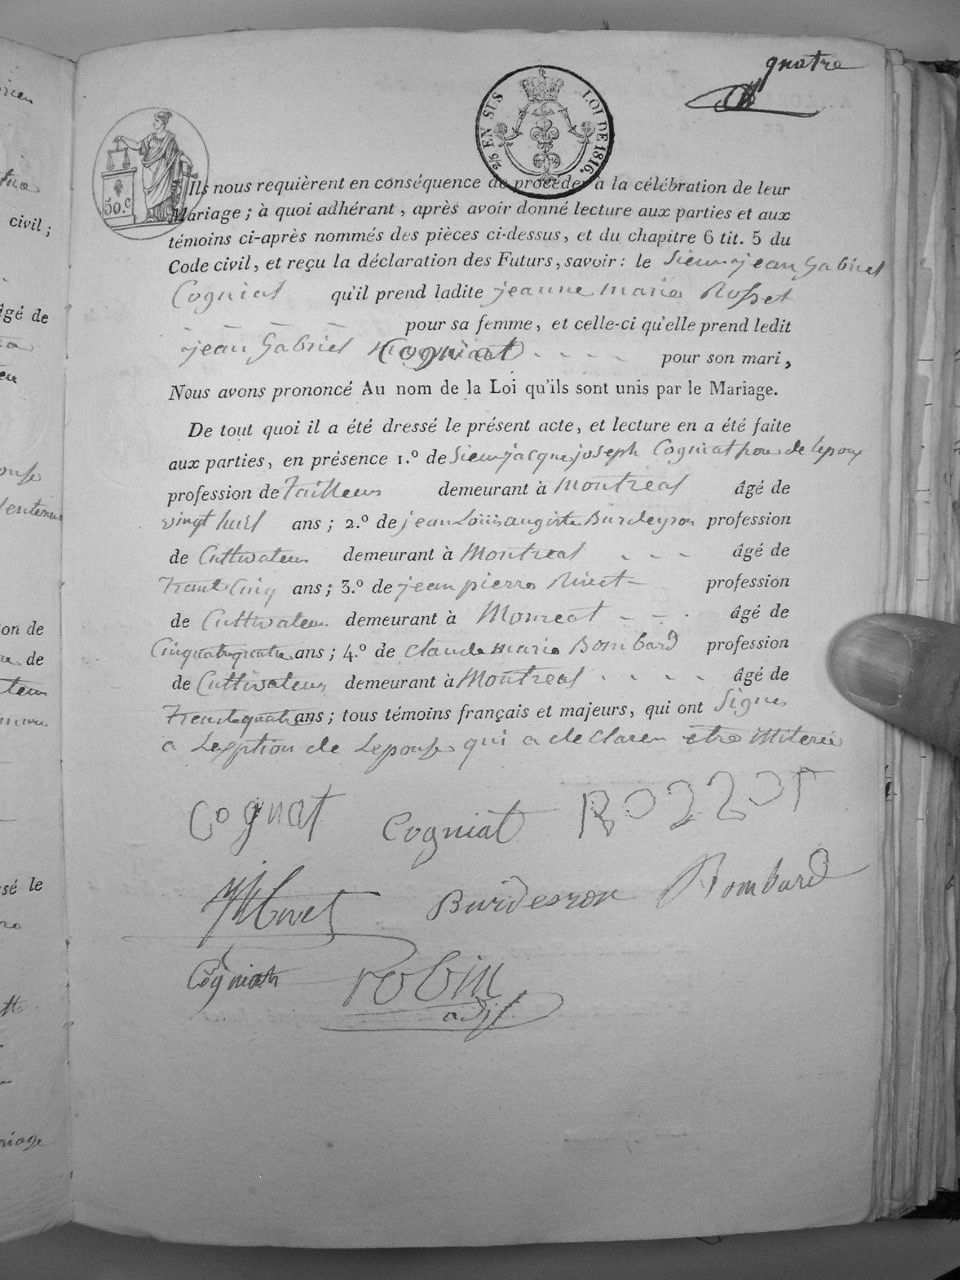 quatre
2/5 EN SUS LOI DE 1816.
50.c
Ils nous requièrent en conséquence de procéder à la célébration de leur
Mariage ; à quoi adhérant, après avoir donné lecture aux parties et aux
témoins ci-après nommés des pièces ci-dessus, et du chapitre 6 tit. 5 du
Code civil, et reçu la déclaration des Futurs, savoir : le Sieur jean Gabriel
Cogniat qu'il prend ladite jeanne marie Rosset
pour sa femme, et celle-ci qu'elle prend ledit
jean Gabriel Cogniat pour son mari,
Nous avons prononcé Au nom de la Loi qu'ils sont unis par le Mariage.
De tout quoi il a été dressé le présent acte, et lecture en a été faite
aux parties, en présence 1.º de Sieur jacque joseph Cogniat de lepoux
profession de Tailleur demeurant à Montreal âgé de
vingt huit ans ; 2.º de jean Louis Burdeyron profession
de Cultivateur demeurant à Montreal âgé de
Trente Cinq ans ; 3.º de jean pierre profession
de Cultivateur demeurant à Monreal âgé de
Cinquante quatre ans ; 4.º de Claude marie Bombard profession
de Cultivateur demeurant à Montreal âgé de
Trente quatre ans ; tous témoins français et majeurs, qui ont Signe
a de Lepouse qui a declaren être
Cognat Cogniat ROZZOT
Burdeyron Bombard
Cogniat robin
adjt
civil ;
gé de
on de
de
sé le